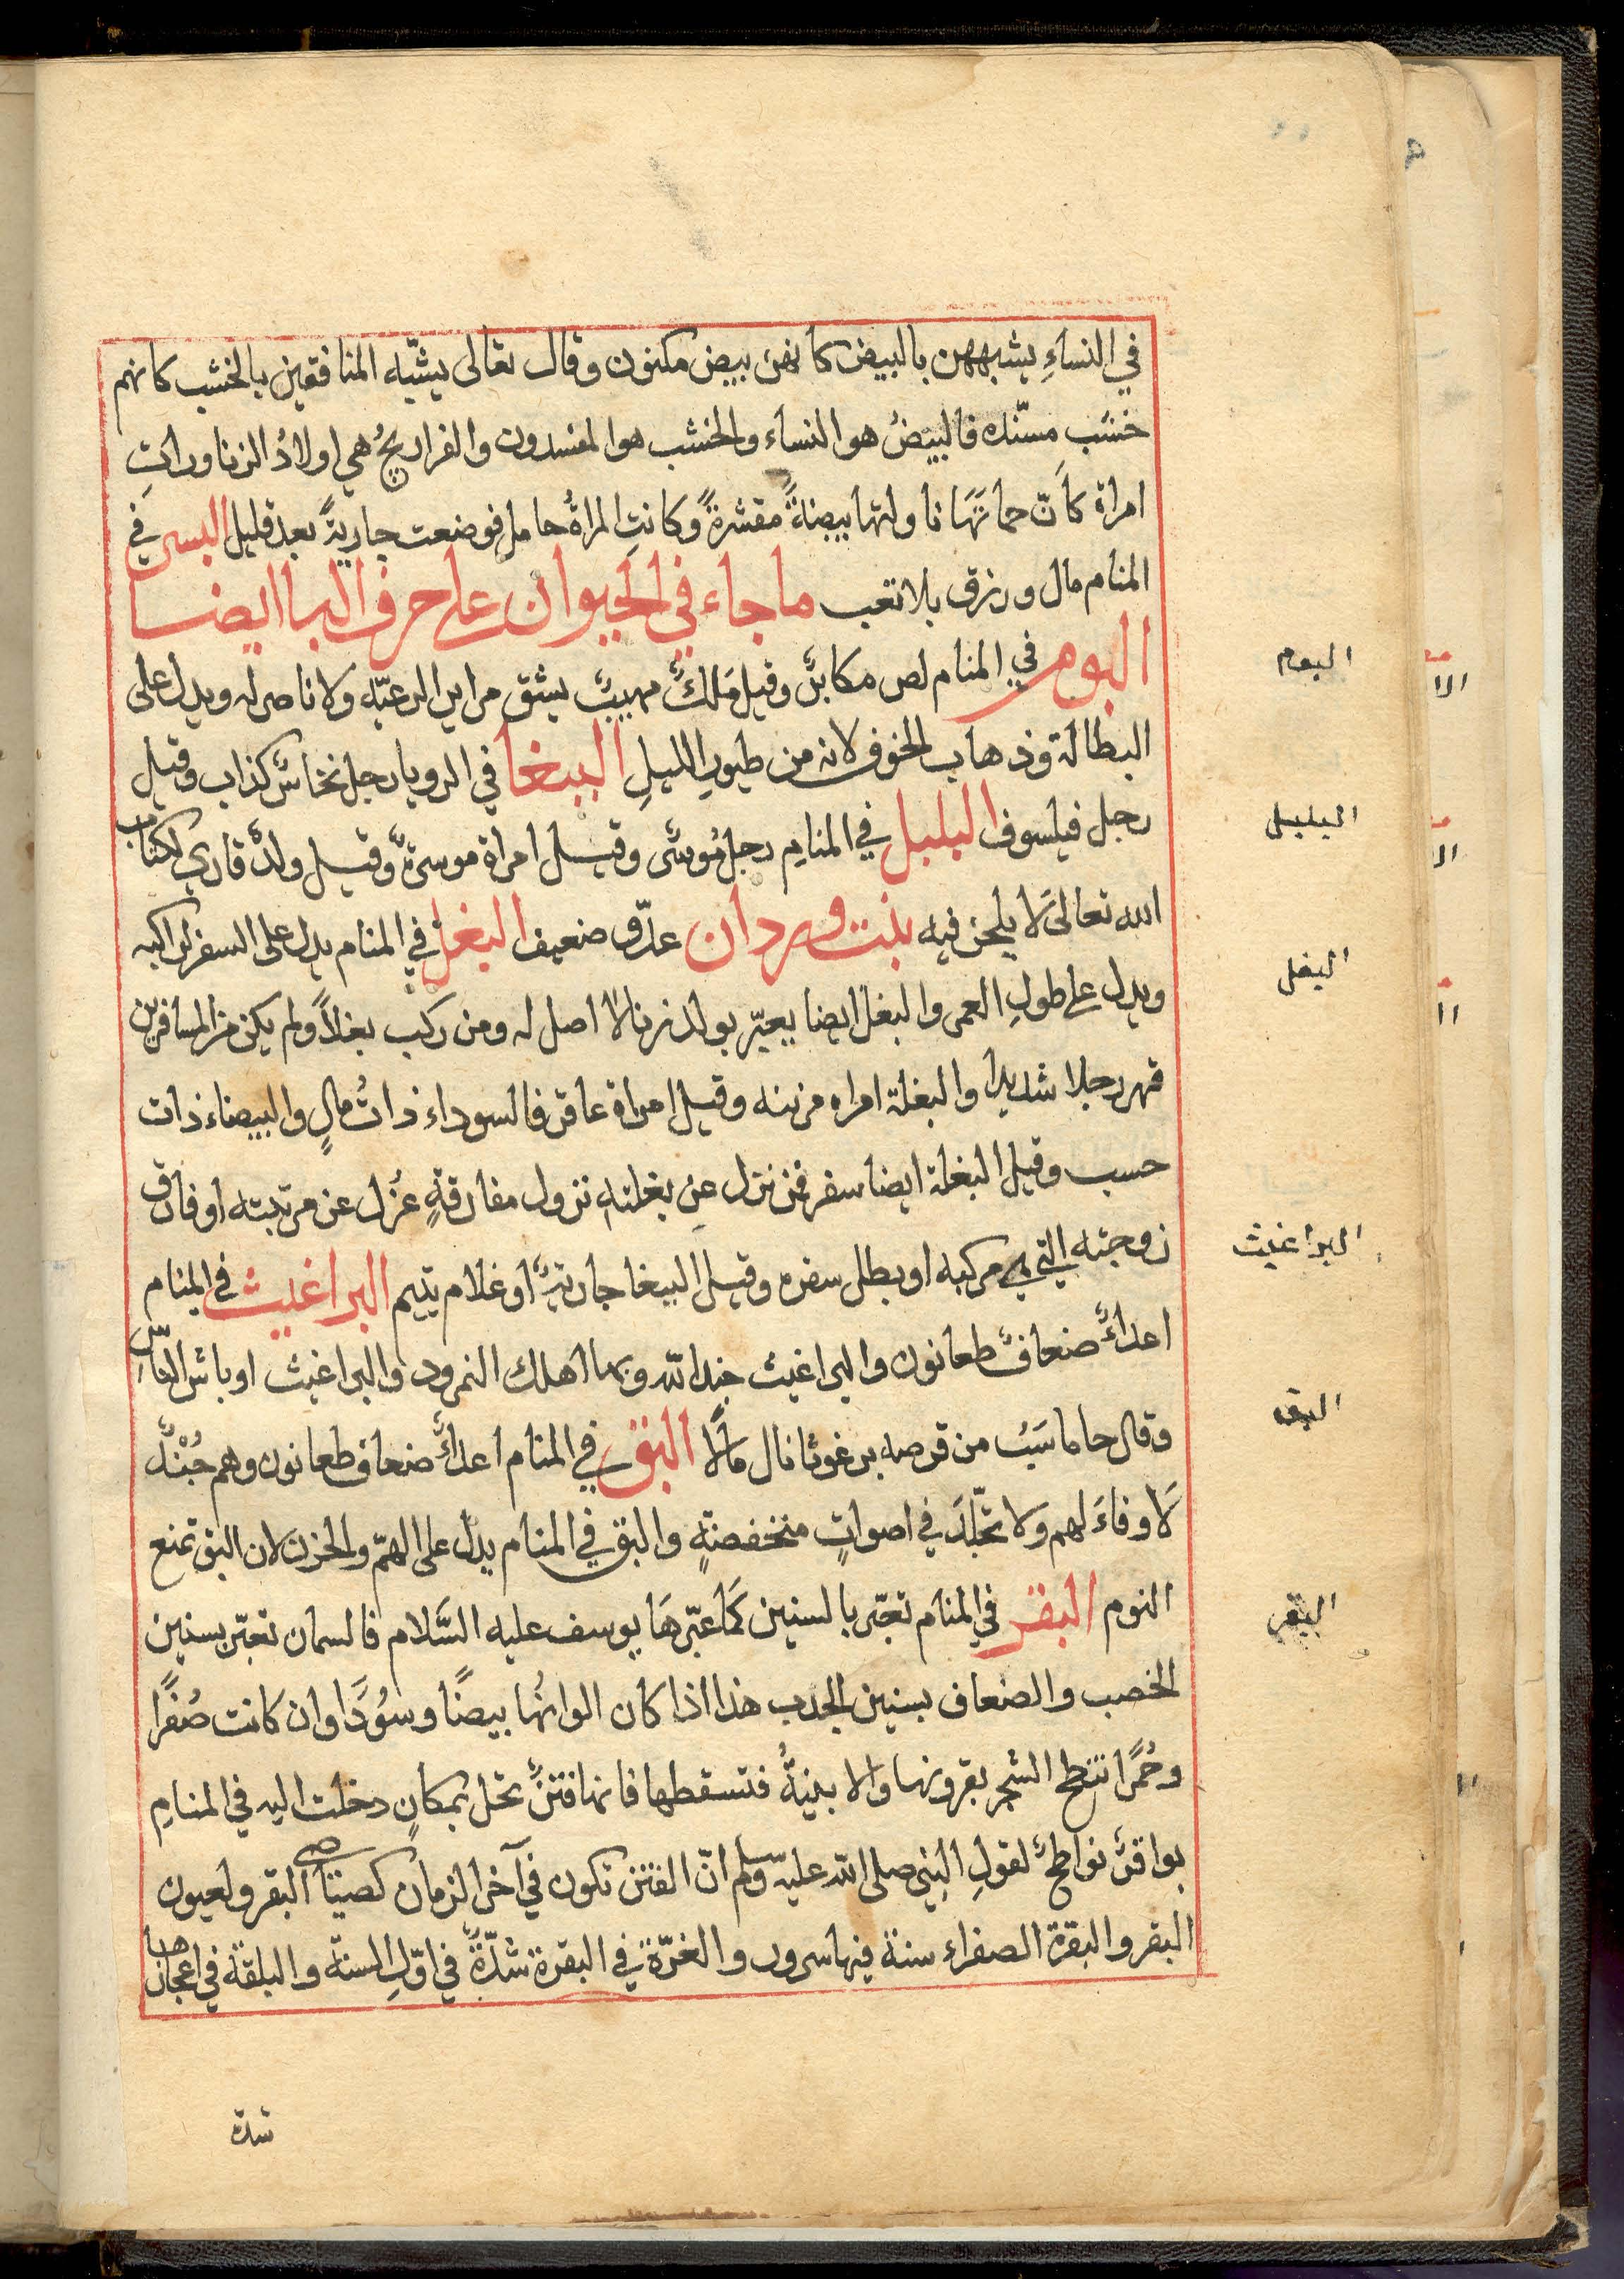 في النساءِ يشبههن بالبيض كأنهن بيض مكنون وقال تعالى يشبّه المنافقين بالخشب كانهم
خشب مسنّده فالبيضُ هو النساء والخشب هو المفسدون والفراريجُ هي اولادُ الزنا وراتِ
امراة كانّ حماتَهَا ناولتها بيضةً مقشرةً وكانتِ المراةُ حامل فوضعت جاريةً بعد قليل البسر في
المنام مال ورزق بلا تعب ما جاء في الحيوان على حرف البا ايضا
البوم في المنام لص مكابرٌ وقيل مَلكٌ مهيبٌ يشق مراير الرعيّه ولا ناصر له ويدل على
البطالة وذهاب الخوف لانه من طيورِ الليلِ الببغا في الرويا رجل نخاسٌ كذاب وقيل
رجل فيلسوف البلبل في المنامِ رجل مُوسرٌ وقيل امراة موسرةٌ وقيل ولدٌ قاري لكتاب
الله تعالى لَا يلحن فيه بنت وردان عدّو ضعيف البغل في المنام يدل على السفر لراكبه
ويدل على طولِ العمر والبغل ايضا يعبّر بولد زنا لا اصل له ومن ركب بغلاً ولم يكن من المسافرين
قهر رجلا شديدا والبغلة امراه مزينه وقيل امراة عاقر فالسوداء ذاتُ مالٍ والبيضاء ذات
حسب وقيل البغلة ايضا سفر فمن نزل عن بغلته نزول مفارقةٍ عُزل عن مرتبته او فارق
زوجته التي هي مركبه او بطل سفره وقيل الببغا جاريةٌ او غلام يتيم البراغيث في المنام
اعداءٌ ضعافٌ طعانون والبراغيث جند الله وبها اهلك النمرود والبراغيث اوباش الناس
وقال جاماسَبُ من قرصه برغوثا نال مالًا البق في المنام اعداءٌ ضعاف طعانون وهم جُنْدٌ
لَا وفاءَ لهم ولا تجلّدَ في اصواتٍ منخفضةٍ والبق في المنام يدل على الهمّ والحزن لان البق تمنع
النوم البقر في المنام تعبّر بالسنين كمَا عبّرهَا يوسف عليه السَّلام فالسمان تعبّر بسنين
الخصب والضعاف بسنين الجدب هذا اذا كان الوانهُا بيضًا وسُودًا وان كانت صُفرًا
وحُمرًا تنطح الشجر بقرونها والابنيةُ فتسقطها فانها فتنٌ تحل بمكانٍ دخلت اليه في المنامِ
بواقرٌ نواطحٌ لقولِ النبي صلى الله عليه وسلم انّ الفتن تكون في آخر الزمان كصياصي البقر ولعيون
البقر والبقرة الصفراء سنة فيها سرور والغرّة في البقرة شدّةٌ في اوّلِ السنة والبلقة في اعجازها
شدة
البوم
البلبل
البغل
البراغيث
البق
البقر